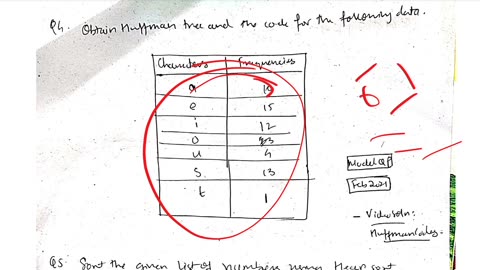 Q4. Obtain Huffman tree and the code for the following data.
Characters Frequencies
a
e 15
i 12
o
u 4
s 13
t 1
6
Model QP
Feb 2021
- Video Soln:
Q5. Sort the given list of numbers using Heap sort